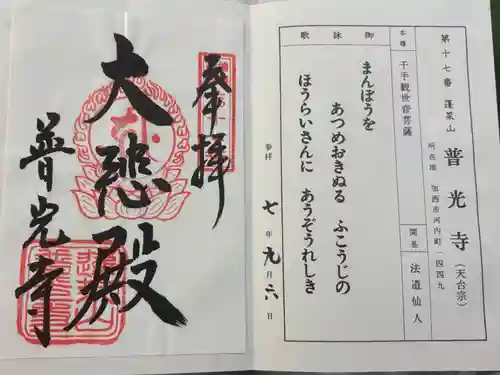 第十七番 蓬莱山 普光寺 (天台宗)
所在地 加西市河内町一四四九
本尊 千手観世音菩薩
開基 法道仙人
御詠歌
まんぽうを
あつめおきぬる ふこうじの
ほうらいさんに あうぞうれしき
参拝 七年九月六日
奉拝
大悲殿
普光寺